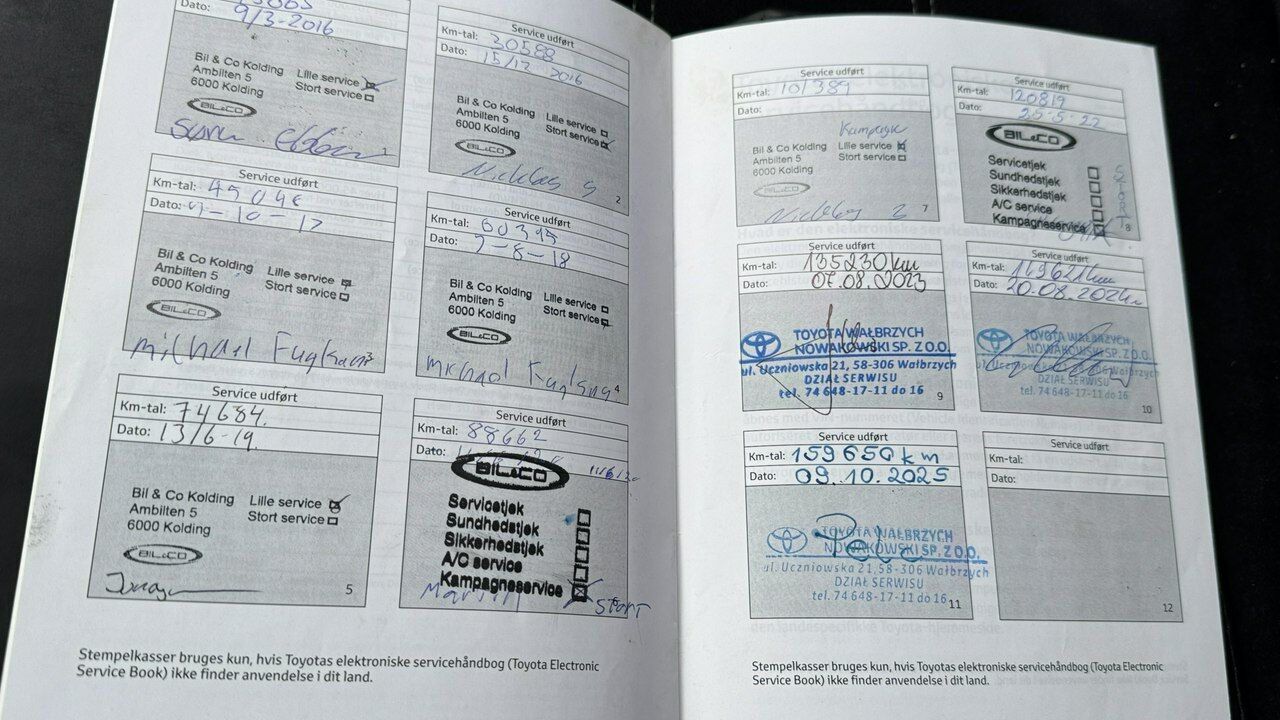 9/3-2016
Bil & Co Kolding
Ambilten 5
6000 Kolding
Lille service
Stort service
BIL&CO
1
Service udført
Km-tal: 30588
Dato: 15/12 2016
Bil & Co Kolding
Ambilten 5
6000 Kolding
Lille service
Stort service
BIL&CO
Nicklas S
2
Service udført
Km-tal: 45048
Dato: 4-10-17
Bil & Co Kolding
Ambilten 5
6000 Kolding
Lille service
Stort service
BIL&CO
Michael
3
Service udført
Km-tal: 60395
Dato: 7-8-18
Bil & Co Kolding
Ambilten 5
6000 Kolding
Lille service
Stort service
BIL&CO
Michael
4
Service udført
Km-tal: 74684.
Dato: 13/6-19.
Bil & Co Kolding
Ambilten 5
6000 Kolding
Lille service
Stort service
BIL&CO
5
Service udført
Km-tal: 88662
Dato:
BIL&CO
Servicetjek
Sundhedstjek
Sikkerhedstjek
A/C service
Kampagneservice
START
Stempelkasser bruges kun, hvis Toyotas elektroniske servicehåndbog (Toyota Electronic
Service Book) ikke finder anvendelse i dit land.
Service udført
Km-tal: 101389
Dato:
Kampagne
Bil & Co Kolding
Ambilten 5
6000 Kolding
Lille service
Stort service
BIL&CO
7
Service udført
Km-tal: 120819
Dato: 25-5-22
BIL&CO
Servicetjek
Sundhedstjek
Sikkerhedstjek
A/C service
Kampagneservice
8
Service udført
Km-tal: 135230 km
Dato: 07.08.2023
TOYOTA WAŁBRZYCH
NOWAKOWSKI SP. Z O.O.
ul. Uczniowska 21, 58-306 Wałbrzych
DZIAŁ SERWISU
tel. 74 648-17-11 do 16
9
Service udført
Km-tal: 149621km
Dato: 20.08.2024
TOYOTA WAŁBRZYCH
NOWAKOWSKI SP. Z O.O.
ul. Uczniowska 21, 58-306 Wałbrzych
DZIAŁ SERWISU
tel. 74 648-17-11 do 16
10
Service udført
Km-tal: 159650 km
Dato: 09.10.2025
TOYOTA WAŁBRZYCH
NOWAKOWSKI SP. Z O.O.
ul. Uczniowska 21, 58-306 Wałbrzych
DZIAŁ SERWISU
tel. 74 648-17-11 do 16
11
Service udført
Km-tal:
Dato:
12
Stempelkasser bruges kun, hvis Toyotas elektroniske servicehåndbog (Toyota Electronic
Service Book) ikke finder anvendelse i dit land.